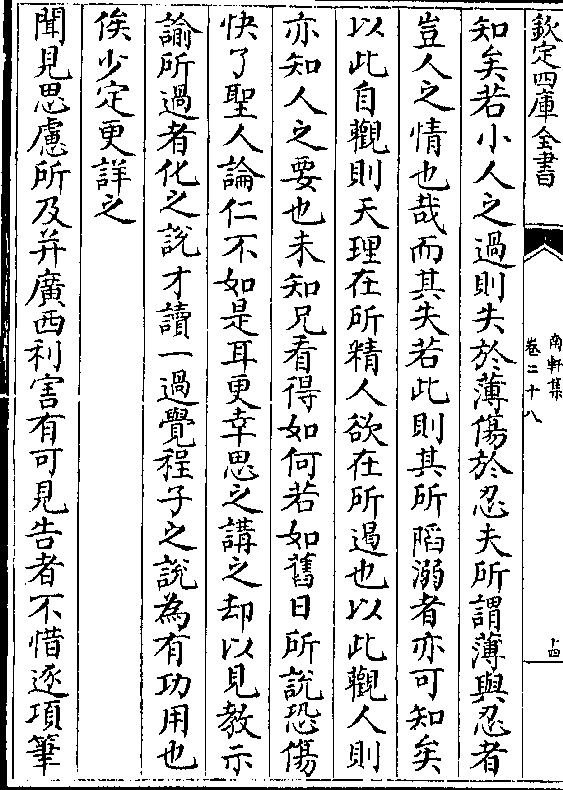 欽定四庫全書
南軒集
卷二十八
十四
知矣若小人之過則失於薄傷於忍夫所謂薄與忍者
豈人之情也哉而其失若此則其所陷溺者亦可知矣
以此自觀則天理在所精人欲在所遏也以此觀人則
亦知人之要也未知兄看得如何若如舊日所說恐傷
快了聖人論仁不如是耳更幸思之講之却以見教示
諭所過者化之說才讀一過覺程子之說為有功用也
俟少定更詳之
聞見思慮所及并廣西利害有可見告者不惜逐項筆